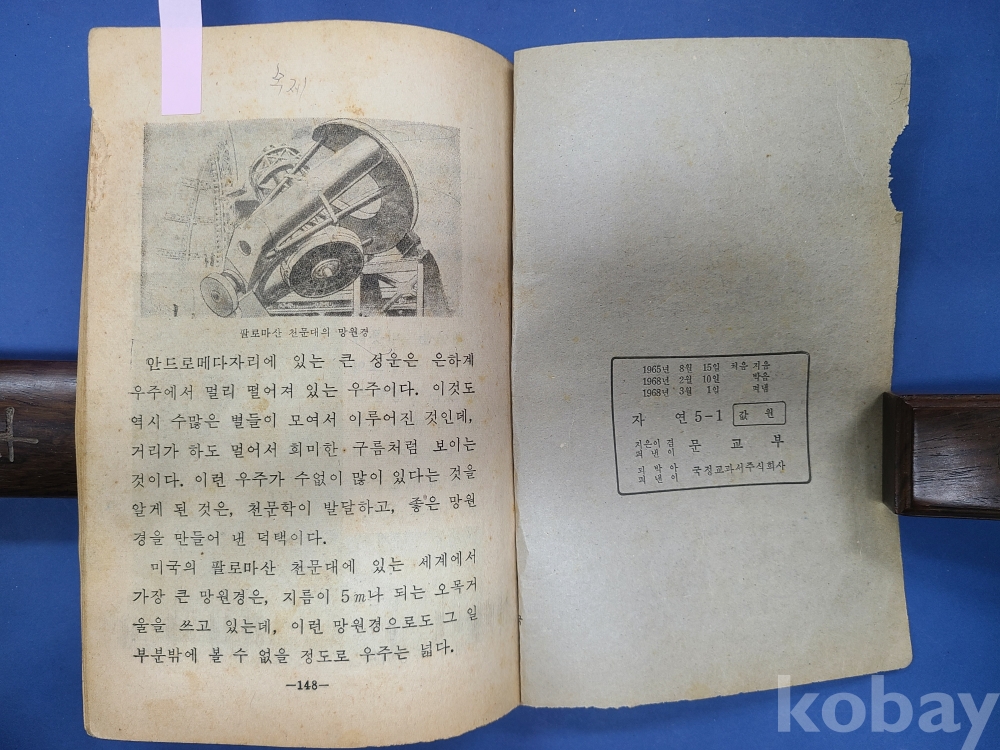 숙제
팔로마산 천문대의 망원경
안드로메다자리에 있는 큰 성운은 은하계
우주에서 멀리 떨어져 있는 우주이다. 이것도
역시 수많은 별들이 모여서 이루어진 것인데,
거리가 하도 멀어서 희미한 구름처럼 보이는
것이다. 이런 우주가 수없이 많이 있다는 것을
알게 된 것은, 천문학이 발달하고, 좋은 망원
경을 만들어 낸 덕택이다.
미국의 팔로마산 천문대에 있는 세계에서
가장 큰 망원경은, 지름이 5m나 되는 오목거
울을 쓰고 있는데, 이런 망원경으로도 그 일
부분밖에 볼 수 없을 정도로 우주는 넓다.
—148—
1965년 8월 15일 처음 지음
1968년 2월 10일 박음
1968년 3월 1일 펴냄
자 연 5-1 값 원
지은이 겸
펴 낸 이 문 교 부
되 박 아
펴 낸 이 국정교과서주식회사
kobay